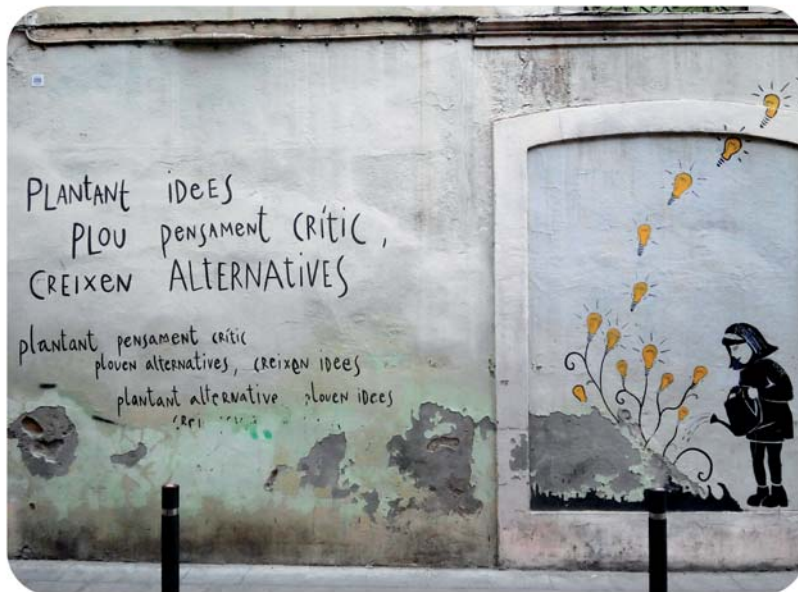 PLANTANT IDEES
PLOU PENSAMENT CRÍTIC,
CREIXEN ALTERNATIVES
plantant pensament crític
plouen alternatives, creixen idees
plantant alternative plouen idees